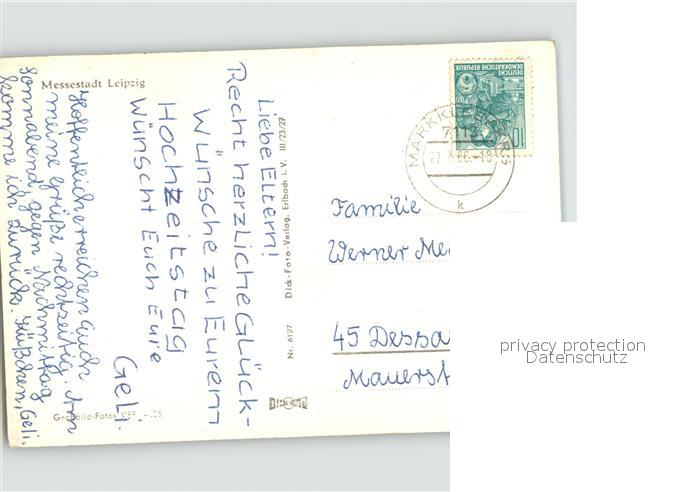 Messestadt Leipzig
Liebe Eltern!
Recht herzliche Glück-
wünsche zu Eurem
Hochzeitstag
wünscht Euch Eure
Geli.
Hoffentlich erreichen Euch
meine Grüße rechtzeitig. Am
Sonnabend, gegen Nachmittag
komme ich zurück. Küßchen, Geli.
Nr. 6127 Dick-Foto-Verlag, Erlbach i. V. III/23/27
DEUTSCHE
DEMOKRATISCHE REPUBLIK
10
MARKKLEEBERG
7113
66.-18
k
Familie
Werner
45 Dessa
Mauerst
privacy protection
Datenschutz